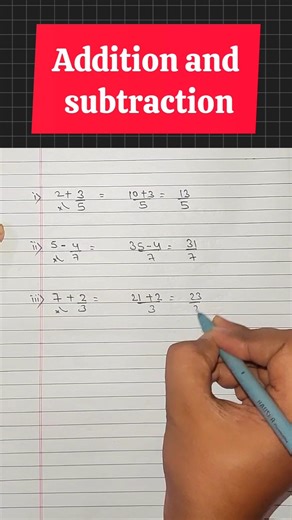 Addition and
subtraction
i) 2 + 3/5 = (10+3)/5 = 13/5
ii) 5 - 4/7 = (35-4)/7 = 31/7
iii) 7 + 2/3 = (21+2)/3 = 23/